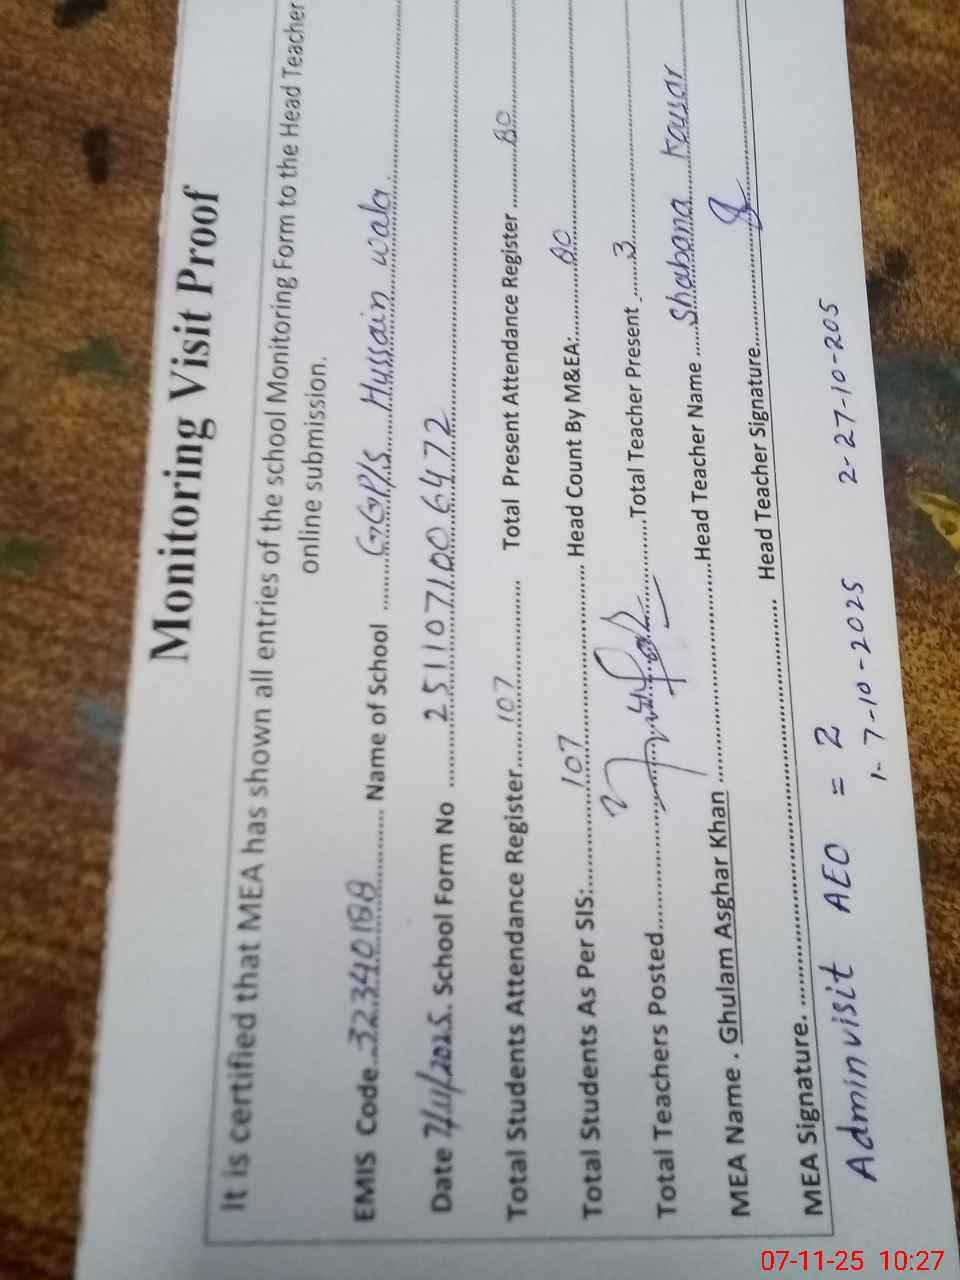 Monitoring Visit Proof
It is certified that MEA has shown all entries of the school Monitoring Form to the Head Teacher
online submission.
EMIS Code 32340188 Name of School GGP/S Hussain wala
Date 7/11/2025 School Form No 2511071006472
Total Students Attendance Register 107 Total Present Attendance Register 80
Total Students As Per SIS: 107 Head Count By M&EA: 80
Total Teachers Posted Total Teacher Present 3
MEA Name . Ghulam Asghar Khan Head Teacher Name Shabana Kousar
MEA Signature. Head Teacher Signature
Adminvisit AEO = 2
1- 7-10-2025 2-27-10-205
07-11-25 10:27